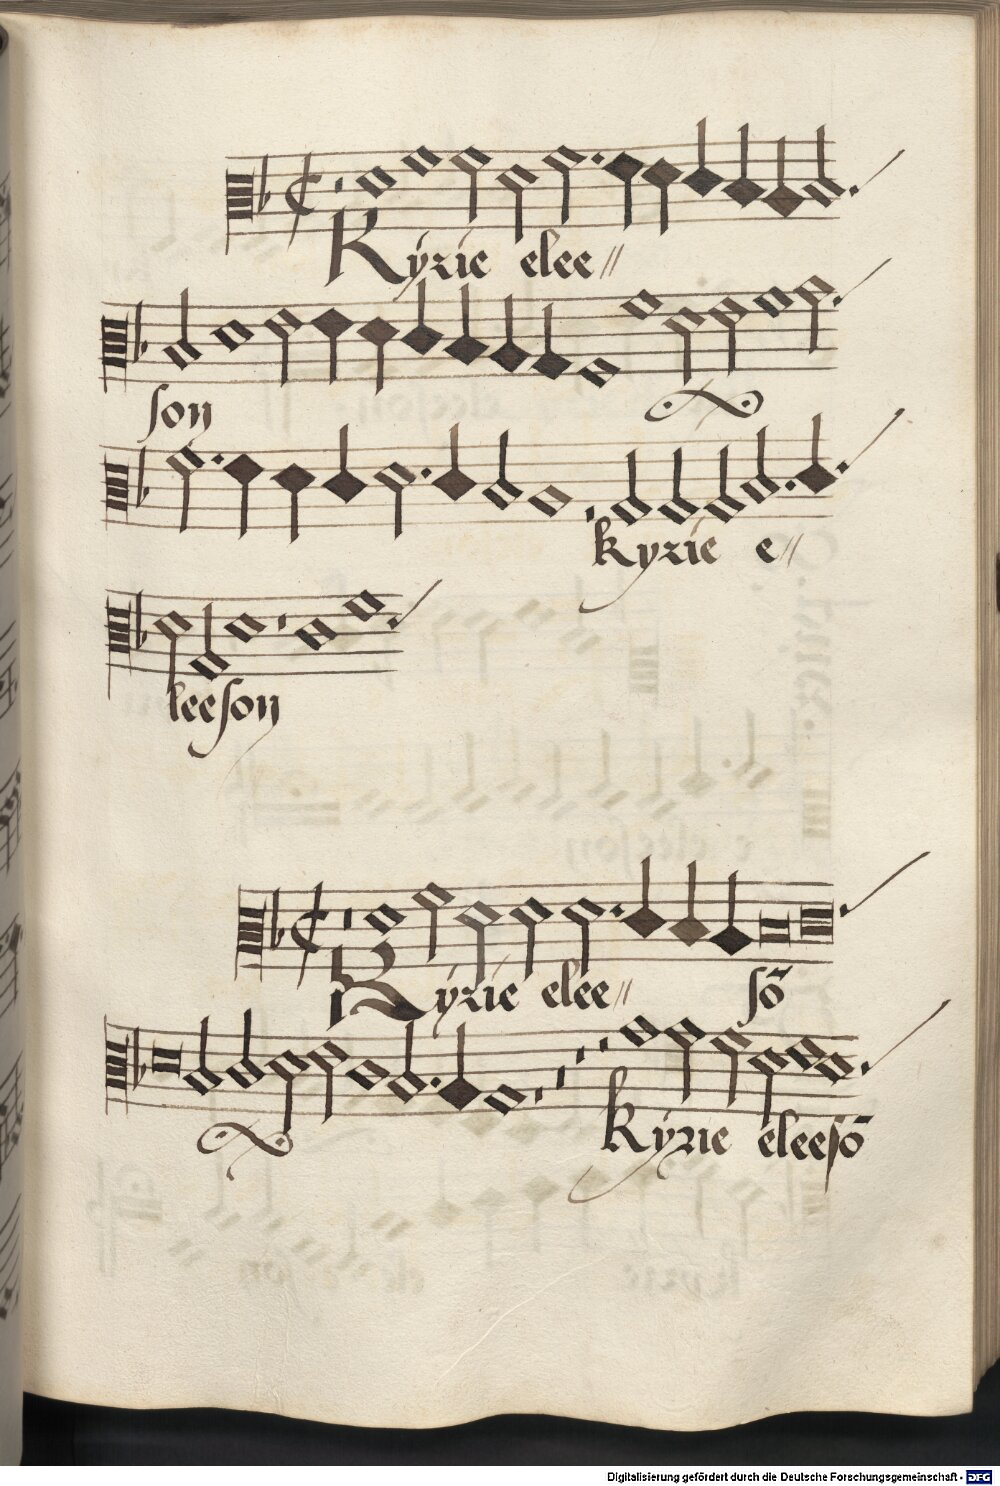 Kyrie elee//
son
kyrie e//
leeson
Kyrie elee// sō
Kyrie eleesō
Digitalisierung gefördert durch die Deutsche Forschungsgemeinschaft - DFG